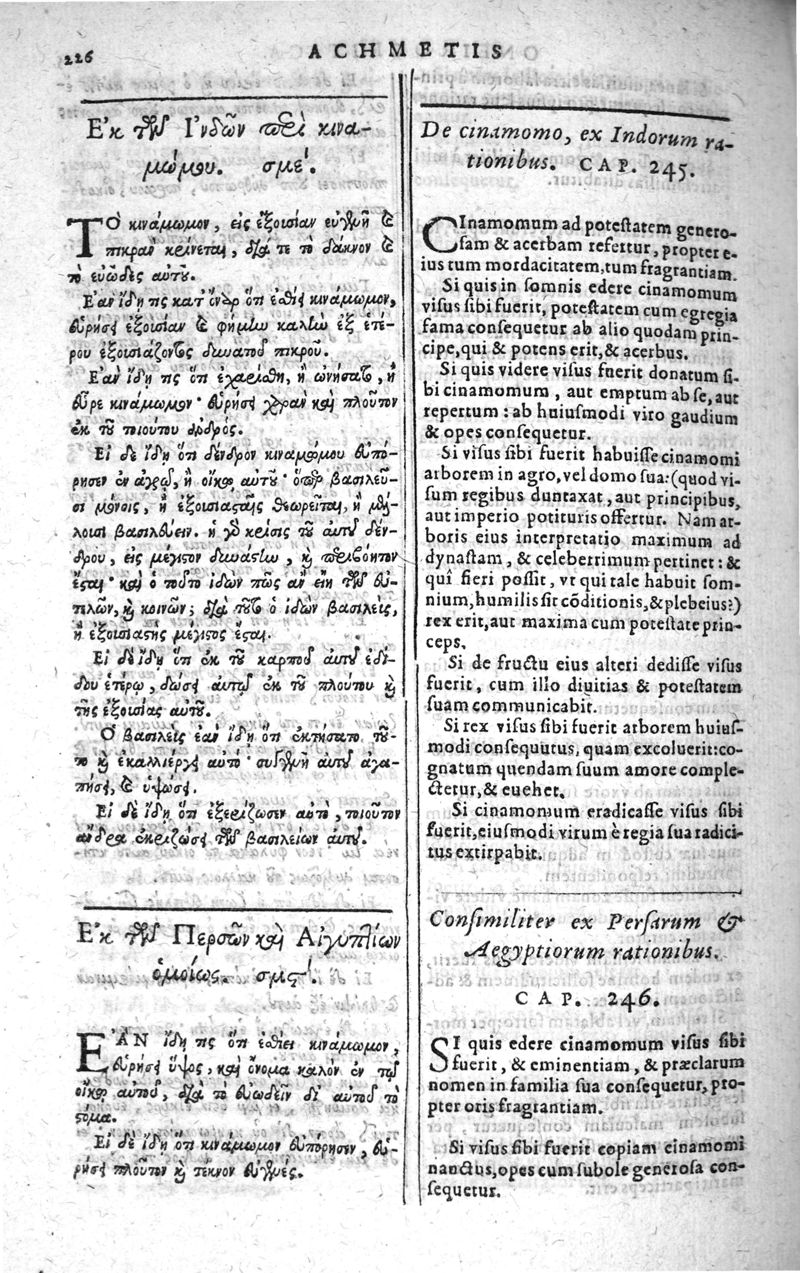 226
ACHMETIS
Ἐκ τῶν Ἰνδῶν περὶ κινα-
μώμου. σμε΄.
ΤΟ κινάμωμον, εἰς ἐξουσίαν εὐγενῆ καὶ
πικρὰν κρίνεται, διά τε τὸ δάκνον καὶ
τὸ εὐῶδες αὐτοῦ.
Ἐὰν ἴδῃ τις κατ' ὄναρ ὅτι ἐσθίει κινάμωμον,
εὑρήσει ἐξουσίαν καὶ φήμην καλὴν ἐξ ἑτέ-
ρου ἐξουσιάζοντος δυνατοῦ πικροῦ.
Ἐὰν ἴδῃ τις ὅτι ἐχαρίσθη, ἢ ὠνήσατο, ἢ
εὗρε κινάμωμον· εὑρήσει χαρὰν καὶ πλοῦτον
ἐκ τοῦ τοιούτου ἀνδρός.
Εἰ δὲ ἴδῃ ὅτι δένδρον κιναμώμου εὐπό-
ρησεν ἐν ἀγρῷ, ἢ οἴκῳ αὐτοῦ· ὅπερ βασιλεῦ-
σι μόνοις, ἢ ἐξουσιασταῖς θεωρεῖται, ἢ μέλ-
λουσι βασιλεύειν. ἡ γὸ κρίσις τοῦ αὐτοῦ δέν-
δρου, εἰς μέγιστον δυνάστην, καὶ περιβόητον
ἔσται· καὶ ὁ τοῦτο ἰδὼν πῶς ἂν εἴη τῶν εὐ-
τελῶν, καὶ κοινῶν; διὰ τοῦτο ὁ ἰδὼν βασιλεὺς,
ἢ ἐξουσιαστὴς μέγιστος ἔσται.
Εἰ δὲ ἴδῃ ὅτι ἐκ τοῦ καρποῦ αὐτοῦ ἐδί-
δου ἑτέρῳ, δώσει αὐτῷ ἐκ τοῦ πλούτου καὶ
τῆς ἐξουσίας αὐτοῦ.
Ὁ βασιλεὺς ἐὰν ἴδῃ ὅτι ἐκτήσατο τοῦ-
το καὶ ἐκαλλιέργει αὐτό· συγγενῆ αὐτοῦ ἀγα-
πήσει, καὶ ὑψώσει.
Εἰ δὲ ἴδῃ ὅτι ἐξερίζωσεν αὐτὸ, τοιοῦτον
ἄνδρα ἐκριζώσει τῶν βασιλείων αὐτοῦ.
Ἐκ τῶν Περσῶν καὶ Αἰγυπτίων
ὁμοίως. σμς΄.
ΕΑΝ ἴδῃ τις ὅτι ἐσθίει κινάμωμον,
εὑρήσει ὕψος, καὶ ὄνομα καλὸν ἐν τῷ
οἴκῳ αὐτοῦ, διὰ τὸ εὐωδεῖν δι' αὐτοῦ τὸ
στόμα.
Εἰ δὲ ἴδῃ ὅτι κινάμωμον εὐπόρησεν, εὑ-
ρήσει πλοῦτον καὶ τέκνον εὐγενές.
De cinamomo, ex Indorum ra-
tionibus. CAP. 245.
CInamomum ad potestatem genero-
sam & acerbam refertur, propter e-
ius tum mordacitatem, tum fragrantiam.
Si quis in somnis edere cinamomum
visus sibi fuerit, potestatem cum egregia
fama consequetur ab alio quodam prin-
cipe, qui & potens erit, & acerbus.
Si quis videre visus fuerit donatum si-
bi cinamomum, aut emptum ab se, aut
repertum: ab huiusmodi viro gaudium
& opes consequetur.
Si visus sibi fuerit habuisse cinamomi
arborem in agro, vel domo sua: (quod vi-
sum regibus duntaxat, aut principibus,
aut imperio potituris offertur. Nam ar-
boris eius interpretatio maximum ad
dynastam, & celeberrimum pertinet: &
qui fieri possit, vt qui tale habuit som-
nium, humilis sit cōditionis, & plebeius?)
rex erit, aut maxima cum potestate prin-
ceps.
Si de fructu eius alteri dedisse visus
fuerit, cum illo diuitias & potestatem
suam communicabit.
Si rex visus sibi fuerit arborem huius-
modi consequutus, quam excoluerit: co-
gnatum quendam suum amore comple-
ctetur, & euehet.
Si cinamomum eradicasse visus sibi
fuerit, eiusmodi virum è regia sua radici-
tus extirpabit.
Consimiliter ex Persarum &
Aegyptiorum rationibus.
CAP. 246.
SI quis edere cinamomum visus sibi
fuerit, & eminentiam, & præclarum
nomen in familia sua consequetur, pro-
pter oris fragrantiam.
Si visus sibi fuerit copiam cinamomi
nanctus, opes cum subole generosa con-
sequetur.